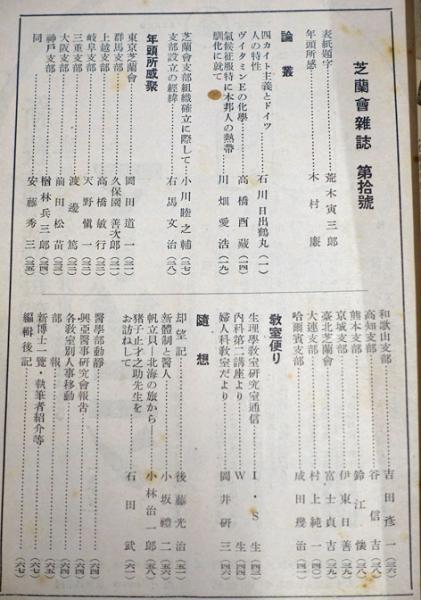 芝蘭會雜誌 第拾號
表紙題字 荒木寅三郎
年頭所感 木村廉
論叢
四カイト主義とドイツ
人の特性 石川日出鶴丸(一)
ヴイタミンEの化學 高橋酉藏(一四)
氣候征服特に本邦人の熱帶
馴化に就て 川畑愛浩(一九)
芝蘭會支部組織確立に際して 小川睦之輔(二七)
支部設立の經緯 右馬文治(二八)
年頭所感聚
東京芝蘭會 岡田道一(三一)
群馬支部 久保園善次郎(三一)
上越支部 高橋敏行(三一)
岐阜支部 天野愼一(三一)
三重支部 渡邊篤
大阪支部 前田松苗
神戸支部 楢林兵三郎
同 安藤秀三
和歌山支部 吉田彦一(三六)
高知支部 谷信吉
熊本支部 鈴江懐
京城支部 伊東日善
臺北芝蘭會 富士貞吉
大連支部 村上純一
哈爾賓支部 成田幾治
教室便り
生理學教室研究室通信 I・S生
内科第二講座より W生
婦人科教室だより 岡井研三
隨想
却望記 後藤光治(五一)
新體制と醫人 小坂禮二
帆立貝―北海の旅から― 小林治一郎(五八)
猪子止才之助先生を
お訪ねして 石田武(六一)
醫學部動靜
興亞醫事研究會報告
各教室別人事移動
部報
新博士一覽・執筆者紹介等
編輯後記(六七)